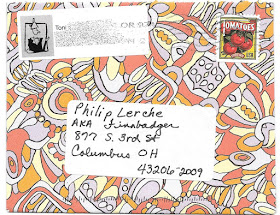 Tom
TOMATOES
Philip Lerche
AKA Finnbadger
877 S. 3rd St
Columbus OH
43206-2009